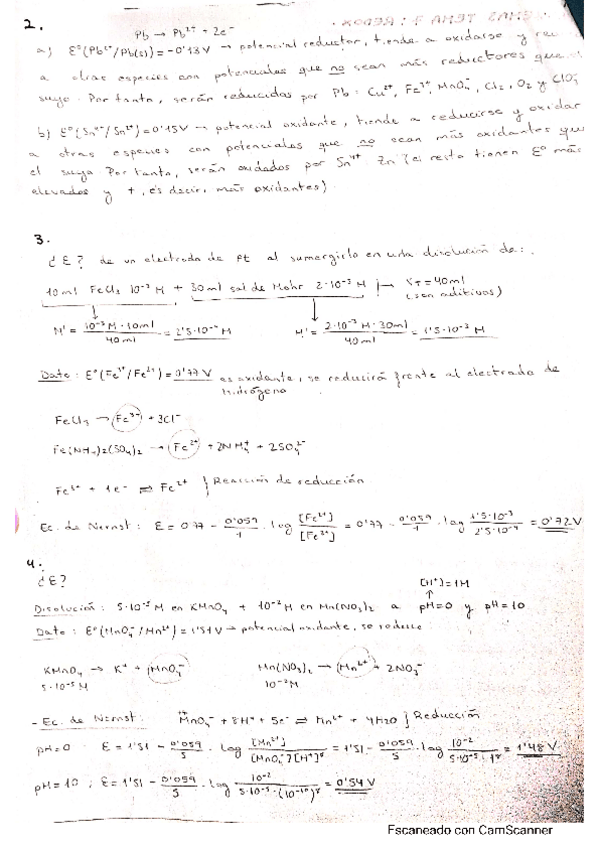 2.
Pb → Pb²⁺ + 2e⁻
a) E°(Pb²⁺/Pb(s)) = -0'13V → potencial reductor, tiende a oxidarse y
a otras especies con potenciales que no sean más reductores que el
suyo. Por tanto, serán reducidas por Pb: Cu²⁺, Fe³⁺, MnO₄⁻, Cl₂, O₂ y ClO₃⁻
b) E°(Sn⁴⁺/Sn²⁺) = 0'15V → potencial oxidante, tiende a reducirse y oxidar
a otras especies con potenciales que no sean más oxidantes que
el suyo. Por tanto, serán oxidados por Sn⁴⁺: Zn (el resto tienen E° más
elevados y +, es decir, más oxidantes)
3.
¿E? de un electrodo de Pt al sumergirlo en una disolución de:
10ml FeCl₃ 10⁻³ M + 30ml sal de Mohr 2·10⁻³ M → V_T = 40ml
(son aditivos)
M' = 10⁻³M · 10ml / 40ml = 2'5·10⁻⁴ M
M' = 2·10⁻³M · 30ml / 40ml = 1'5·10⁻³ M
Dato: E°(Fe³⁺/Fe²⁺) = 0'77 V es oxidante, se reducirá frente al electrodo de
hidrógeno
FeCl₃ → Fe³⁺ + 3Cl⁻
Fe(NH₄)₂(SO₄)₂ → Fe²⁺ + 2NH₄⁺ + 2SO₄²⁻
Fe³⁺ + 1e⁻ ⇌ Fe²⁺ } Reacción de reducción
Ec. de Nernst: E = 0'77 - 0'059/1 · log [Fe²⁺]/[Fe³⁺] = 0'77 - 0'059/1 · log 1'5·10⁻³/2'5·10⁻⁴ = 0'72V
4.
¿E?
[H⁺] = 1M
↑
Disolución: 5·10⁻⁵ M en KMnO₄ + 10⁻² M en Mn(NO₃)₂ a pH=0 y pH=10
Dato: E°(MnO₄⁻/Mn²⁺) = 1'51V → potencial oxidante, se reduce
KMnO₄ → K⁺ + MnO₄⁻
5·10⁻⁵ M
Mn(NO₃)₂ → Mn²⁺ + 2NO₃⁻
10⁻² M
- Ec. de Nernst: MnO₄⁻ + 8H⁺ + 5e⁻ ⇌ Mn²⁺ + 4H₂O } Reducción
pH=0 E = 1'51 - 0'059/5 · log [Mn²⁺]/[MnO₄⁻][H⁺]⁸ = 1'51 - 0'059/5 · log 10⁻²/5·10⁻⁵·1⁸ = 1'48 V
pH=10; E = 1'51 - 0'059/5 · log 10⁻²/5·10⁻⁵·(10⁻¹⁰)⁸ = 0'54 V
Escaneado con CamScanner